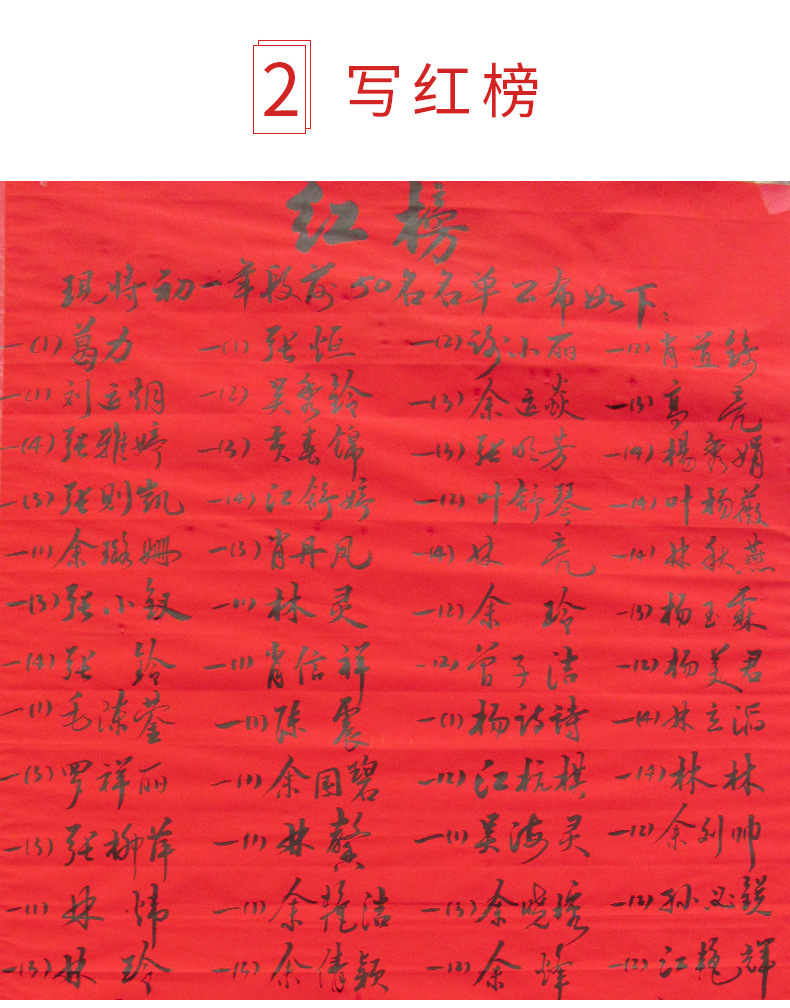 2 写红榜
红榜
现将初一年段前50名名单公布如下:
一(1)葛力 一(1)张恒 一(2)谢小丽 一(2)肖道锋
一(1)刘运炯 一(2)吴秀铃 一(3)余立焱 一(3)高亮
一(4)张雅婷 一(3)黄春锦 一(3)张晓芳 一(4)杨秀娟
一(3)张则凯 一(4)江舒婷 一(2)叶舒琴 一(4)叶杨薇
一(1)余璐姗 一(3)肖丹凤 一(4)林亮 一(4)林秋燕
一(3)张小钗 一(1)林灵 一(2)余玲 一(3)杨玉霖
一(4)张铃 一(1)肖信祥 一(2)曾子洁 一(2)杨美君
一(1)毛陈蓥 一(1)陈震 一(1)杨诗诗 一(4)林立滔
一(3)罗祥丽 一(1)余国碧 一(2)江杭棋 一(4)林林
一(3)张柳萍 一(1)林馨 一(1)吴海灵 一(2)余刘帅
一(1)林炜 一(1)余艳洁 一(3)余晓琇 一(2)孙
一(3)林玲 一(3)余倩颖 一(3)余烽 一(2)江艳辉